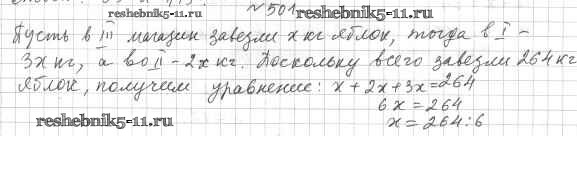 №501
reshebnik5-11.ru reshebnik5-11.ru
Пусть в III магазин завезли x кг яблок, тогда в I –
3x кг, а во II – 2x кг. Поскольку всего завезли 264 кг
яблок, получим уравнение: x + 2x + 3x = 264
6x = 264
reshebnik5-11.ru x = 264:6